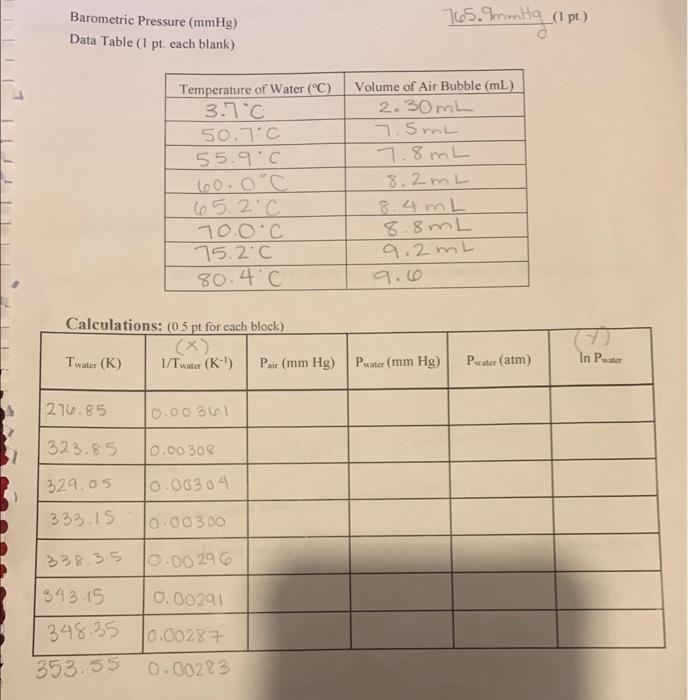 Barometric Pressure (mmHg) 765.9mmHg (1 pt.)
Data Table (1 pt. each blank)
Temperature of Water (°C) Volume of Air Bubble (mL)
3.7°C 2.30mL
50.7°C 7.5mL
55.9°C 7.8mL
60.0°C 8.2mL
65.2°C 8.4mL
70.0°C 8.8mL
75.2°C 9.2mL
80.4°C 9.6
Calculations: (0.5 pt for each block)
(X) (Y)
Twater (K) 1/Twater (K-1) Pair (mm Hg) Pwater (mm Hg) Pwater (atm) ln Pwater
276.85 0.00361
323.85 0.00308
329.05 0.00304
333.15 0.00300
338.35 0.00296
343.15 0.00291
348.35 0.00287
353.55 0.00283